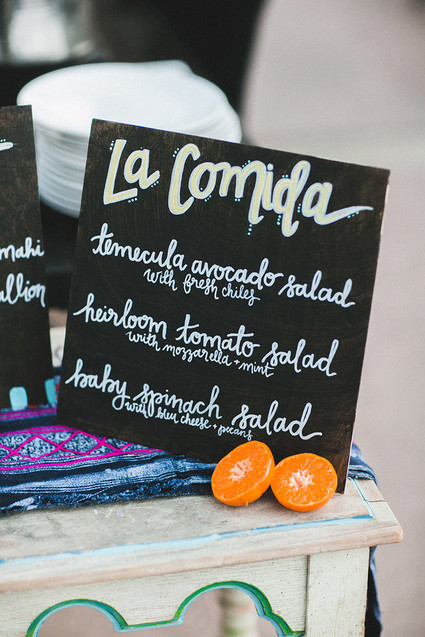 La Comida
temecula avocado salad
with fresh chiles
heirloom tomato salad
with mozzarella + mint
baby spinach salad
with bleu cheese + pecans
mahi